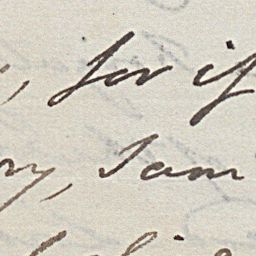 , for if
ry, I am